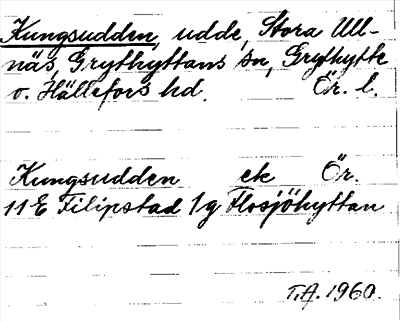 Kungsudden, udde, Stora Ull-
näs, Grythyttans sn, Grythytte
o. Hällefors hd. Ör. l.
Kungsudden ek Ör.
11E Filipstad 1g Flosjöhyttan
T.A. 1960.